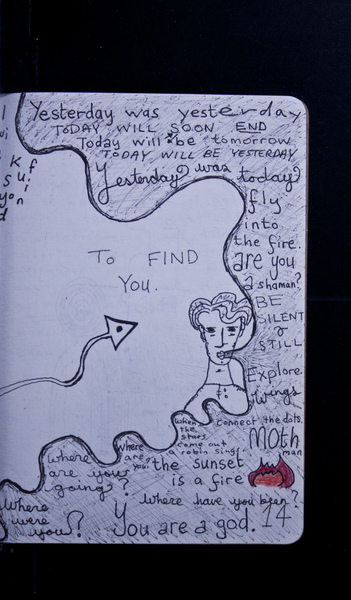 Yesterday was yesterday
TODAY WILL SOON END
Today will be tomorrow
TODAY WILL BE YESTERDAY
Yesterday was today?
fly
into
the fire.
are you
a shaman?
BE
SILENT
&
STILL
TO FIND
YOU.
Explore.
wings
connect the dots.
when
the
stars
come out
a robin sings
Moth
man
where
are
you?
the sunset
is a fire
where
are you
going?
where have you been?
where
were
you?
You are a god. 14